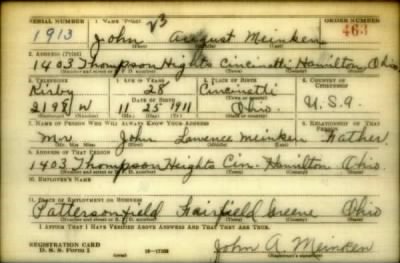 SERIAL NUMBER 1. NAME (Print) ORDER NUMBER
1913 John August Meinken 463
(First) (Middle) (Last)
2. ADDRESS (Print)
1403 Thompson Hights Cincinatti Hamilton Ohio
3. TELEPHONE 4. AGE IN YEARS 5. PLACE OF BIRTH 6. COUNTRY OF CITIZENSHIP
Kirby 28 Cincinatti
DATE OF BIRTH
2198 W 11 25 1911 Ohio. U.S.A.
7. NAME OF PERSON WHO WILL ALWAYS KNOW YOUR ADDRESS 8. RELATIONSHIP OF THAT PERSON
Mr. John Lawrence Meinken Father
(Mr., Mrs., Miss) (First) (Middle) (Last)
9. ADDRESS OF THAT PERSON
1403 Thompson Heights Cin. Hamilton Ohio
10. EMPLOYER'S NAME
11. PLACE OF EMPLOYMENT OR BUSINESS
Patterson field Fairfield Greene Ohio
I AFFIRM THAT I HAVE VERIFIED ABOVE ANSWERS AND THAT THEY ARE TRUE.
REGISTRATION CARD
D. S. S. Form 1 John A. Meinken
(Registrant's signature)